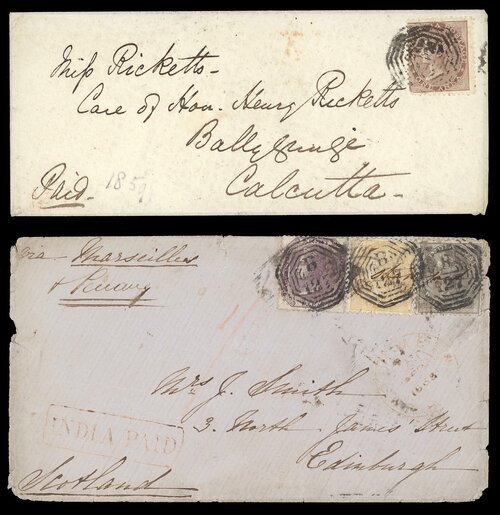 Miss Ricketts-
Care of Hon. Henry Ricketts
Ballygunge
Calcutta-
Paid-
185
via Marseilles
&
B
127
Mrs J. Smith
3. North James' Street
Edinburgh
INDIA PAID
Scotland